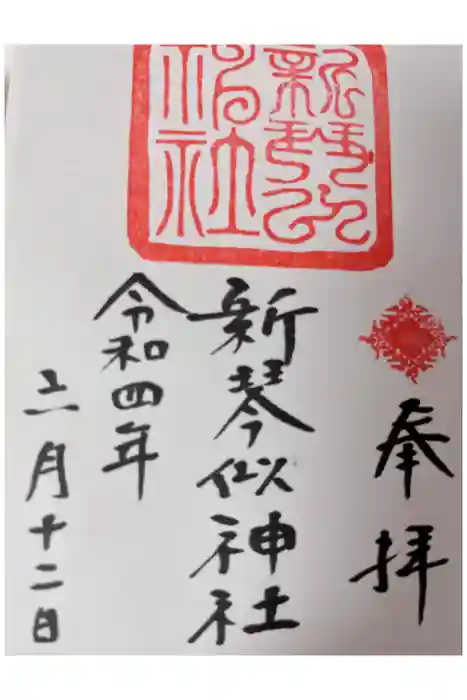 新琴似
神社
奉拝
新琴似神社
令和四年
六月十二日